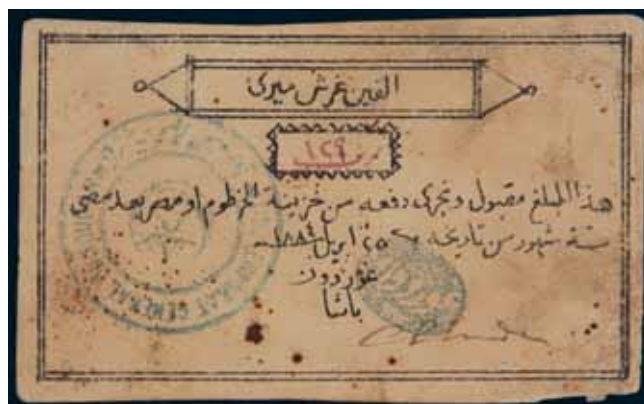 الفين غرش ميرى
نمرة ١٢٩
هذا المبلغ مقبول وتجرى دفعه من خزينة الخرطوم او مصر بعد مضى
ستة شهور من تاريخه ٢٥ ابريل ١٨٨٤
غوردون
باشا
GENERAL